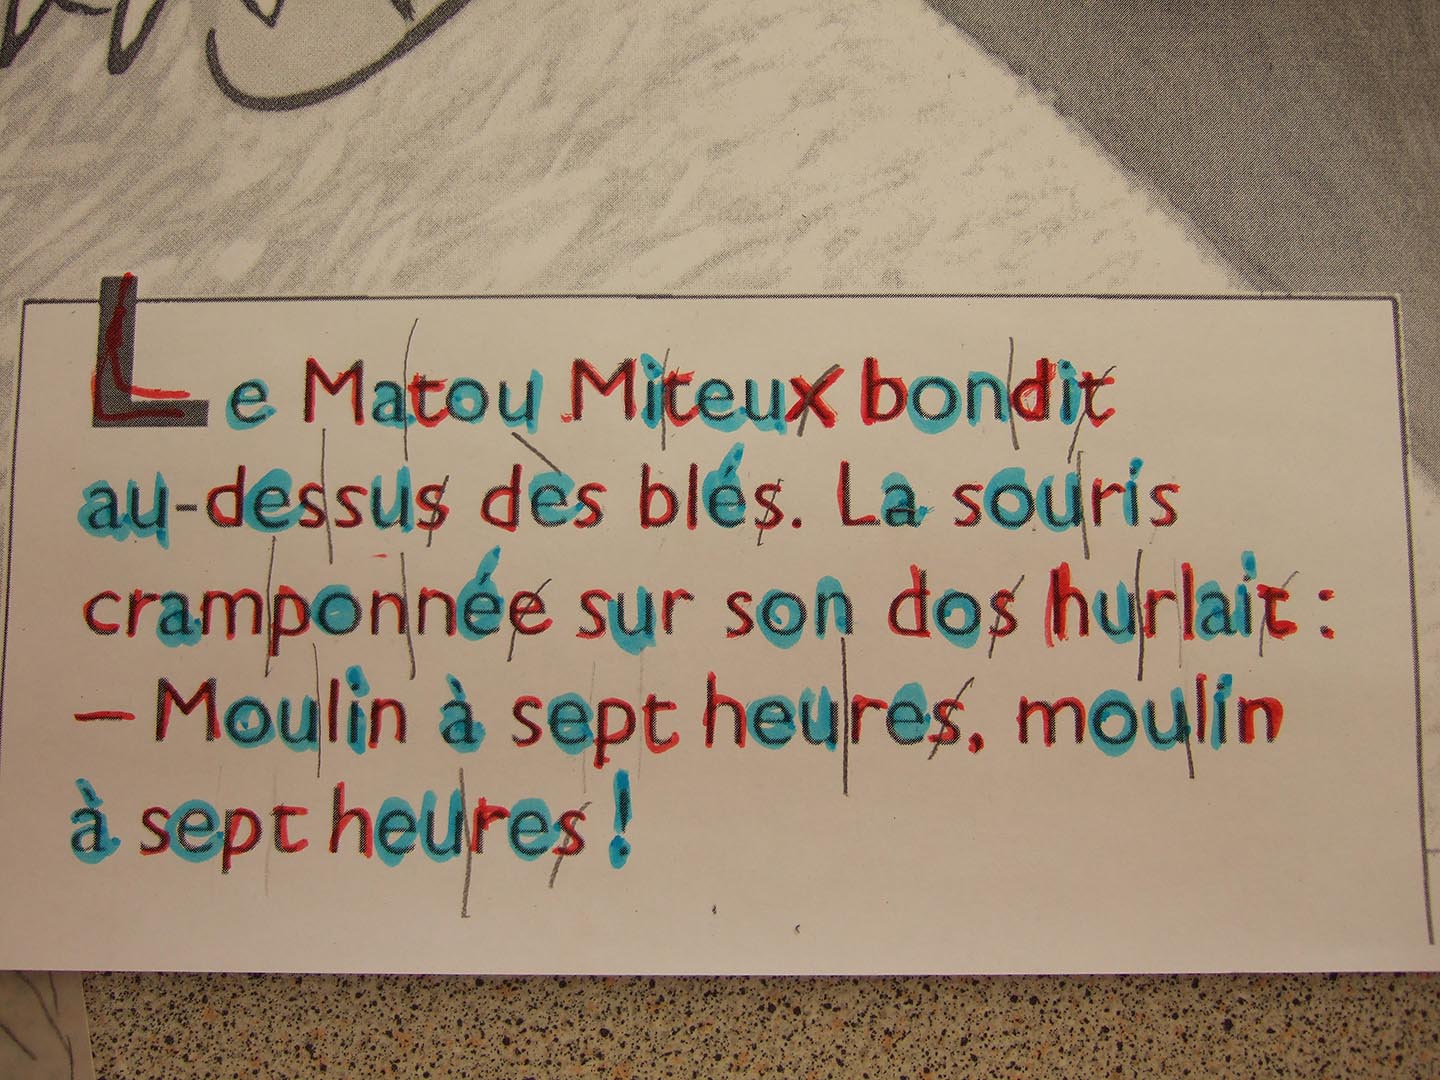 Le Matou Miteux bondit
au-dessus des blés. La souris
cramponnée sur son dos hurlait :
– Moulin à sept heures, moulin
à sept heures !